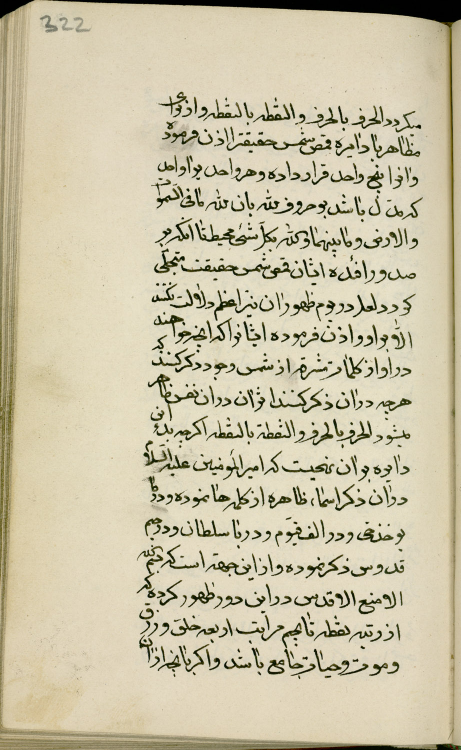 322
میکردد الحرف بالحرف و النقطه بالنقطه و از برای
مظاهر یا دایره قمص شمس حقیقت را اذن فرموده
و انرا پنج واحد قرار داده و هر واحد بر واحد
که مدل باشد بر حروف لله بان لله ما فی السموات
و الارض و ما بینهما و کان الله بکل شئ محیطا انکه در
صدور افئده ایشان قمص شمس حقیقت متجلی
کردد لعل در یوم ظهور ان نیر اعظم دلالت نکنند
الا بر او و اذن فرموده ایشانرا که انچه خواهند
در او از کلمات مشرقه از شمس وجود ذکر کنند که
هرچه در ان ذکر کنند اثر ان در ان نفس ظاهر
میشود الحرف بالحرف و النقطة بالنقطه اکرچه بدء این
دایره بر ان نهجیست که امیر المؤمنین علیه السلام
در ان ذکر اسماء ظاهره از کلمه ها نموده و در
بر خذ حی و در الف قیوم و در با سلطان و در جیم
قدوس ذکر نموده و از این جهة است که شجره
الامنع الاقدس در این دور ظهور کرده که
از رتبه نقطه تا بجیم مراتب اربعه خلق و رزق
و موت و حیات جامع باشد و اکر بانچه از ان